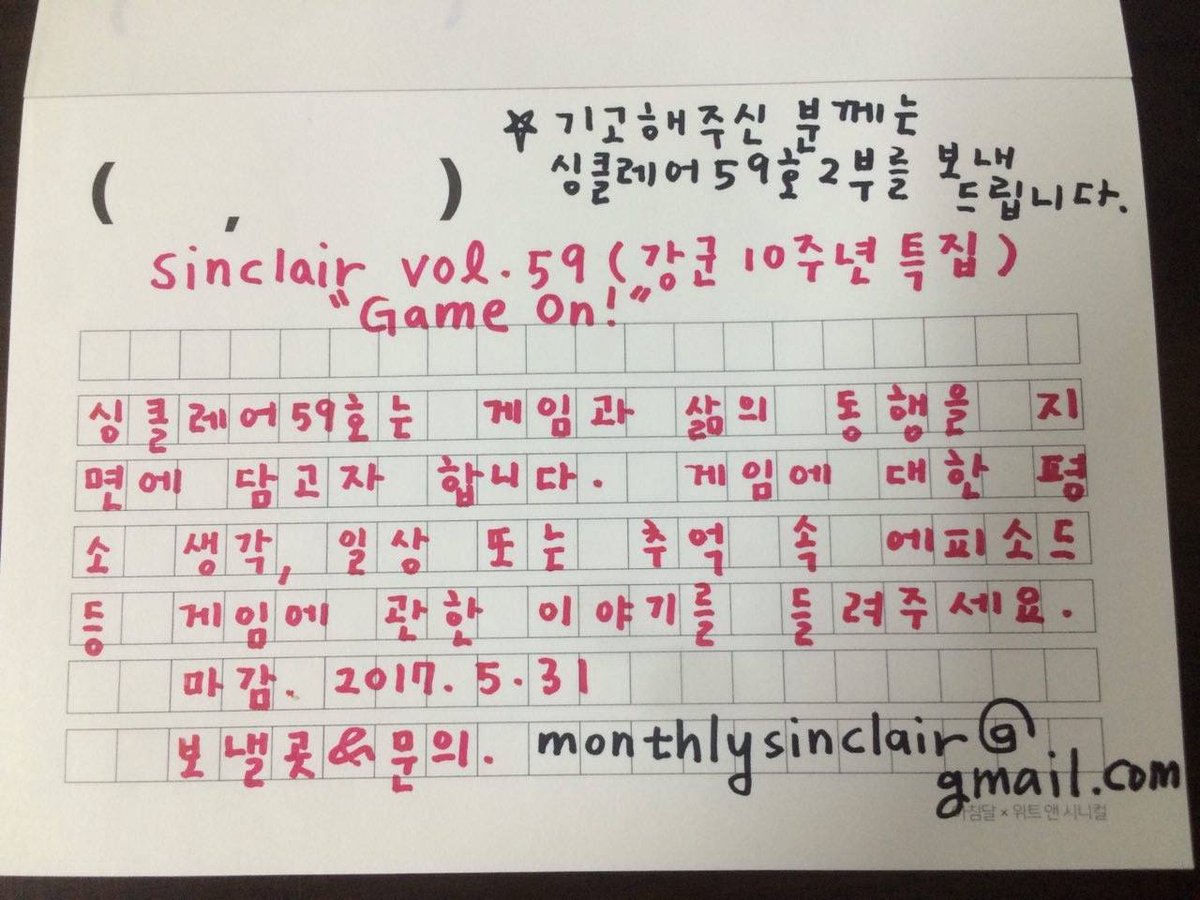 ☆ 기고해주신 분께는
싱클레어 59호 2부를 보내
드립니다.
( , )
Sinclair vol.59 (강균 10주년 특집)
"Game On!"
싱클레어59호는 게임과 삶의 동행을 지
면에 담고자 합니다. 게임에 대한 평
소 생각, 일상 또는 추억 속 에피소드
등 게임에 관한 이야기를 들려주세요.
마감. 2017.5.31
보낼곳&문의. monthlysinclair@
gmail.com
아침달 × 위트 앤 시니컬